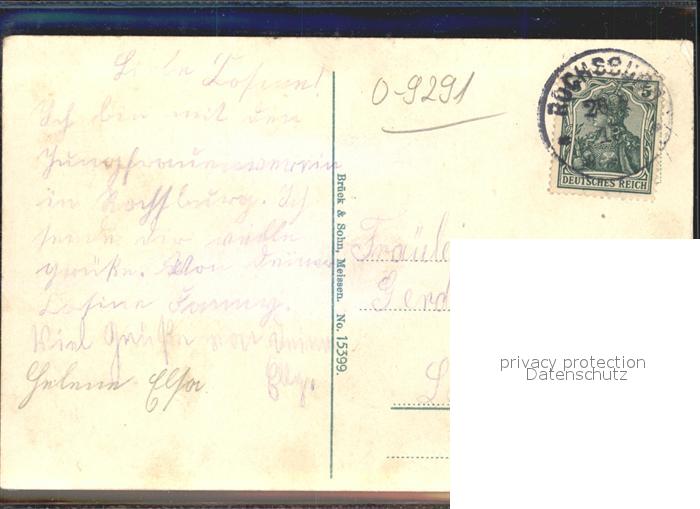 Liebe Cosine!
Ich bin mit den
Jungfrauenverein
in Rochsburg. Ich
sende dir viele
grüße. Von Deiner
Cosine Fanny.
Viel Grüße von Deiner
Helene Elsa. Elly.
0-9291
Brück & Sohn, Meissen. No. 15399.
ROCHSBURG
5
DEUTSCHES REICH
Fräulei
Gerd
privacy protection
Datenschutz